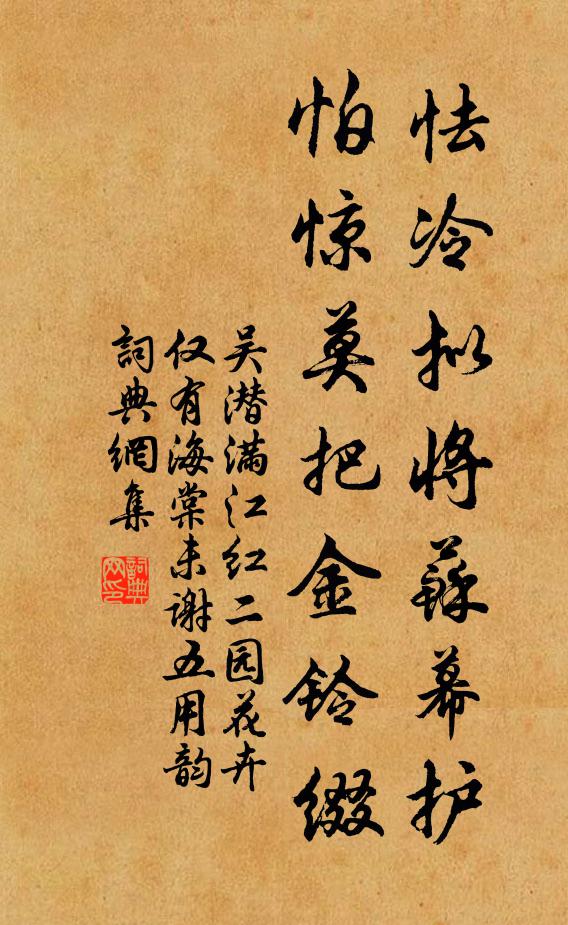 怯冷拟将蘇幕护
怕惊莫把金铃缀
吴潜满江红二园花卉
仅有海棠未谢五用韵
詞典網集
詞典网印